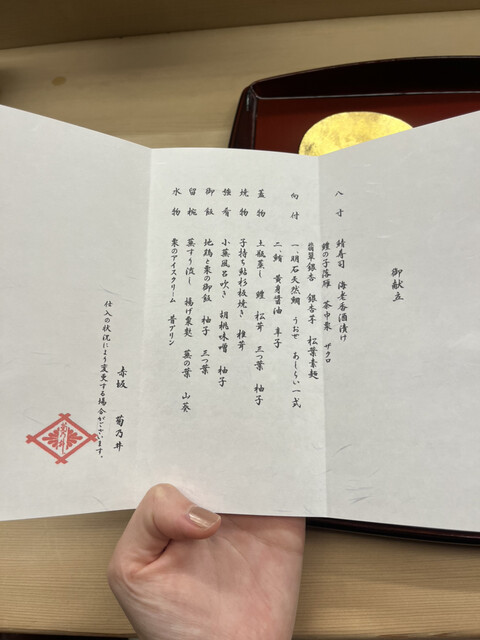 御献立
八寸　鯖寿司　海老香酒漬け
鱧の子落雁　茶巾栗　ザクロ
翡翠銀杏　銀杏芋　松葉素麺
向付　一、明石天然鯛　うおぜ　あしらい一式
二、鮪　黄身醤油　辛子
蓋物　土瓶蒸し　鱧　松茸　三つ葉　柚子
焼物　子持ち鮎杉板焼き　椎茸
強肴　小蕪風呂吹き　胡桃味噌　柚子
御飯　地鶏と栗の御飯　柚子　三つ葉
留椀　蕪すり流し　揚げ粟麩　蕪の葉　山葵
水物　栗のアイスクリーム　昔プリン
赤坂　菊乃井
仕入の状況により変更する場合がございます。
菊乃井